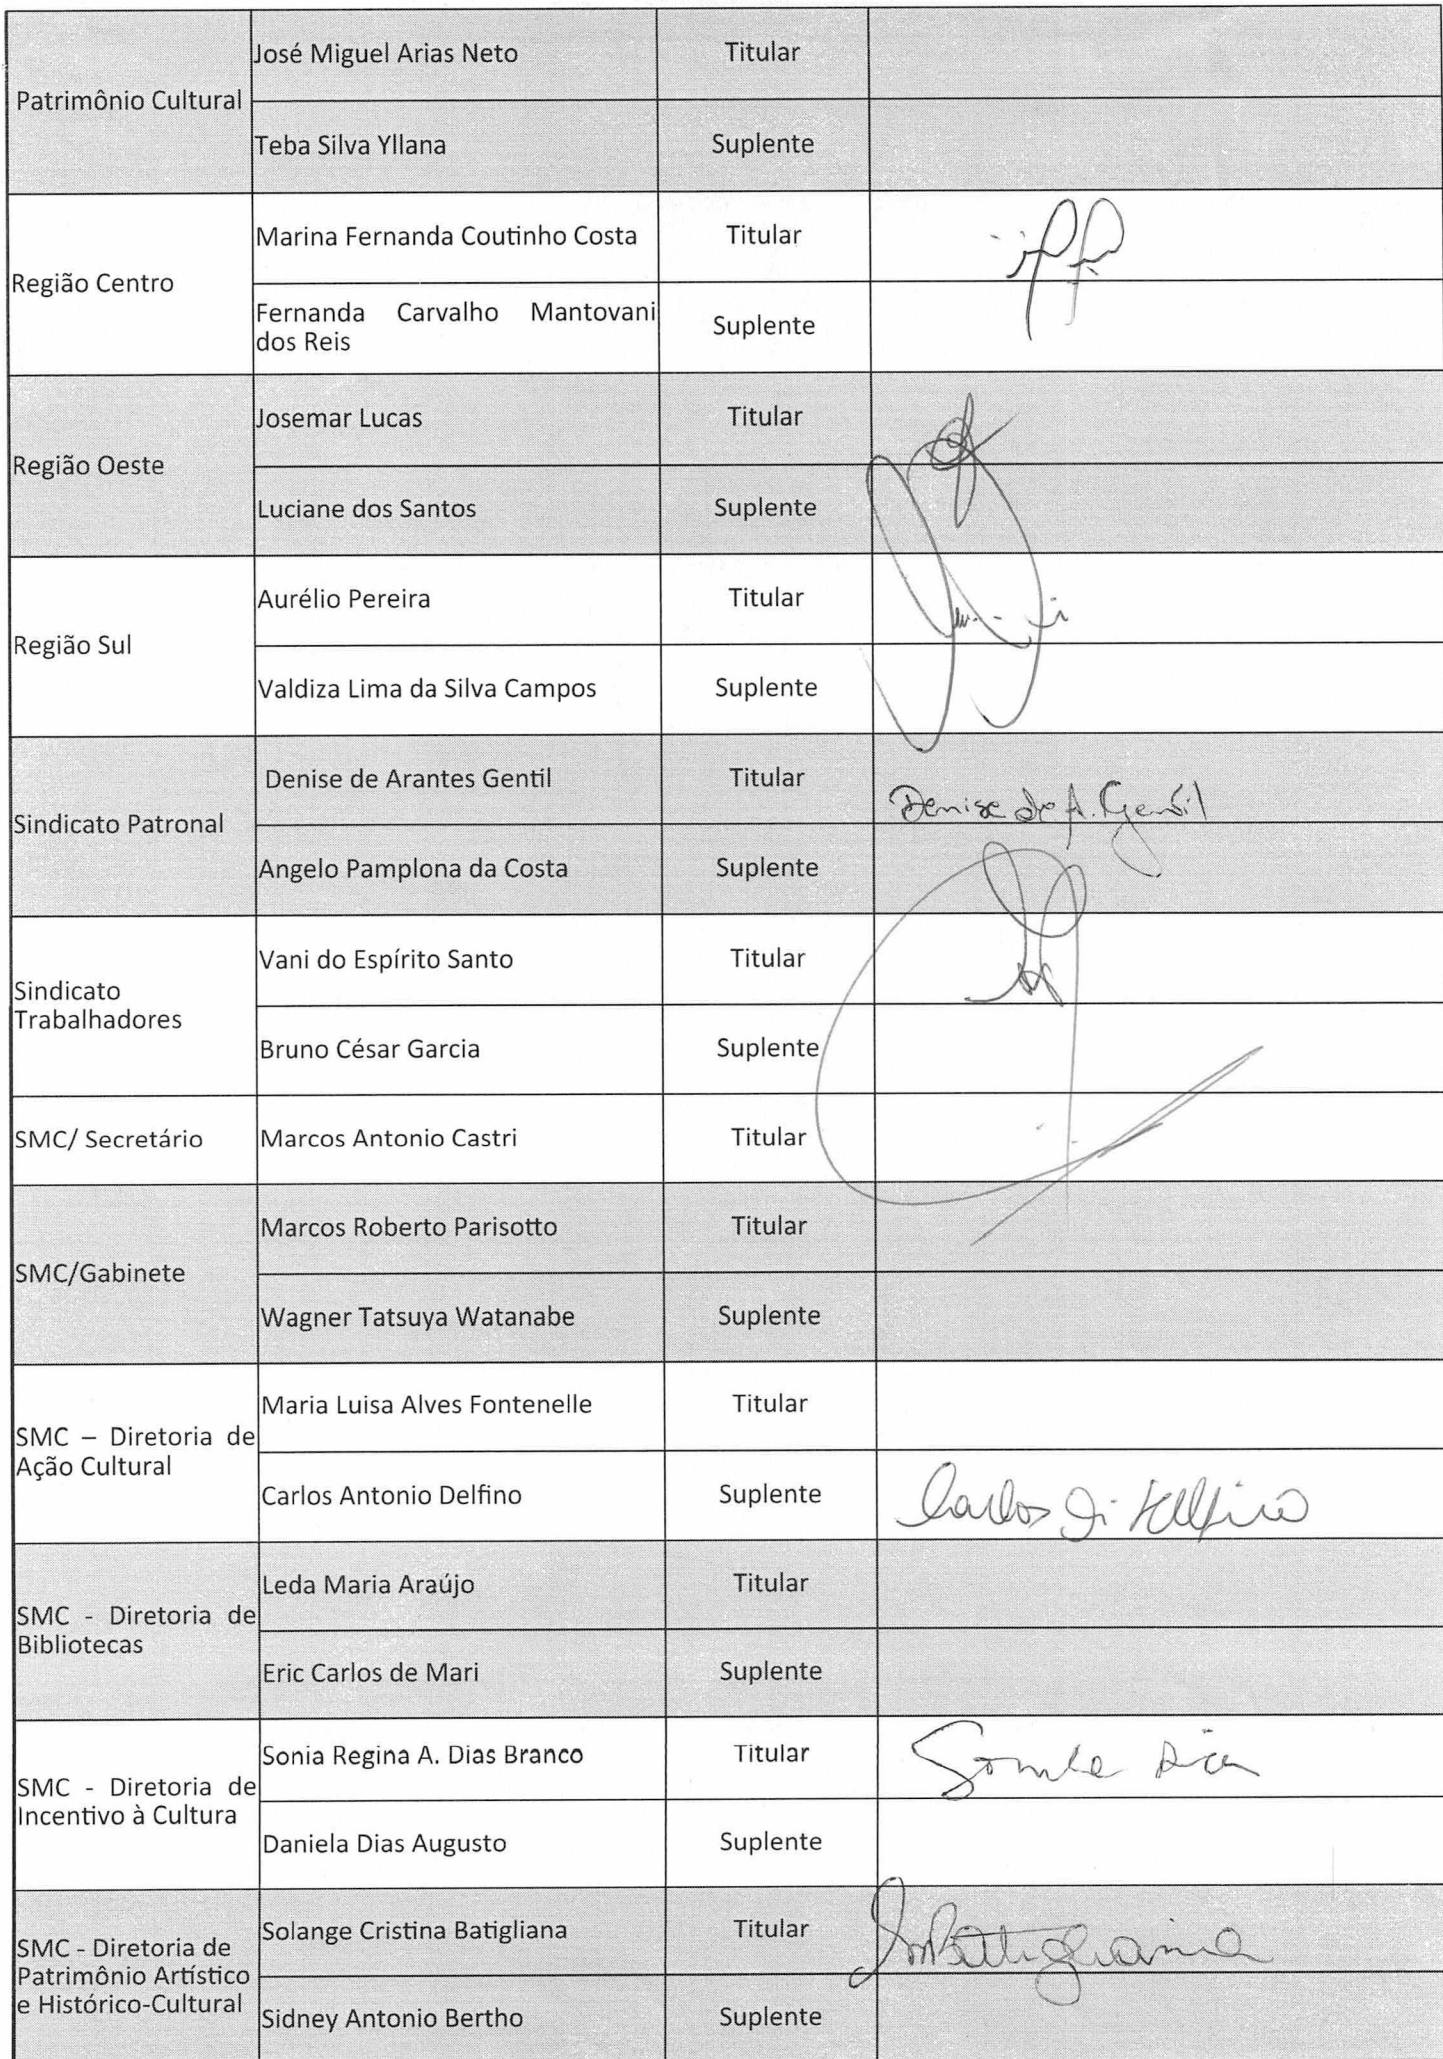 Patrimônio Cultural
José Miguel Arias Neto
Titular
Teba Silva Yllana
Suplente
Região Centro
Marina Fernanda Coutinho Costa
Titular
Fernanda Carvalho Mantovani
dos Reis
Suplente
Região Oeste
Josemar Lucas
Titular
Luciane dos Santos
Suplente
Região Sul
Aurélio Pereira
Titular
Valdiza Lima da Silva Campos
Suplente
Sindicato Patronal
Denise de Arantes Gentil
Titular
Denise de A. Gentil
Angelo Pamplona da Costa
Suplente
Sindicato
Trabalhadores
Vani do Espírito Santo
Titular
Bruno César Garcia
Suplente
SMC/ Secretário
Marcos Antonio Castri
Titular
SMC/Gabinete
Marcos Roberto Parisotto
Titular
Wagner Tatsuya Watanabe
Suplente
SMC – Diretoria de
Ação Cultural
Maria Luisa Alves Fontenelle
Titular
Carlos Antonio Delfino
Suplente
Carlos
SMC - Diretoria de
Bibliotecas
Leda Maria Araújo
Titular
Eric Carlos de Mari
Suplente
SMC - Diretoria de
Incentivo à Cultura
Sonia Regina A. Dias Branco
Titular
Sonia Dias
Daniela Dias Augusto
Suplente
SMC - Diretoria de
Patrimônio Artístico
e Histórico-Cultural
Solange Cristina Batigliana
Titular
Sidney Antonio Bertho
Suplente